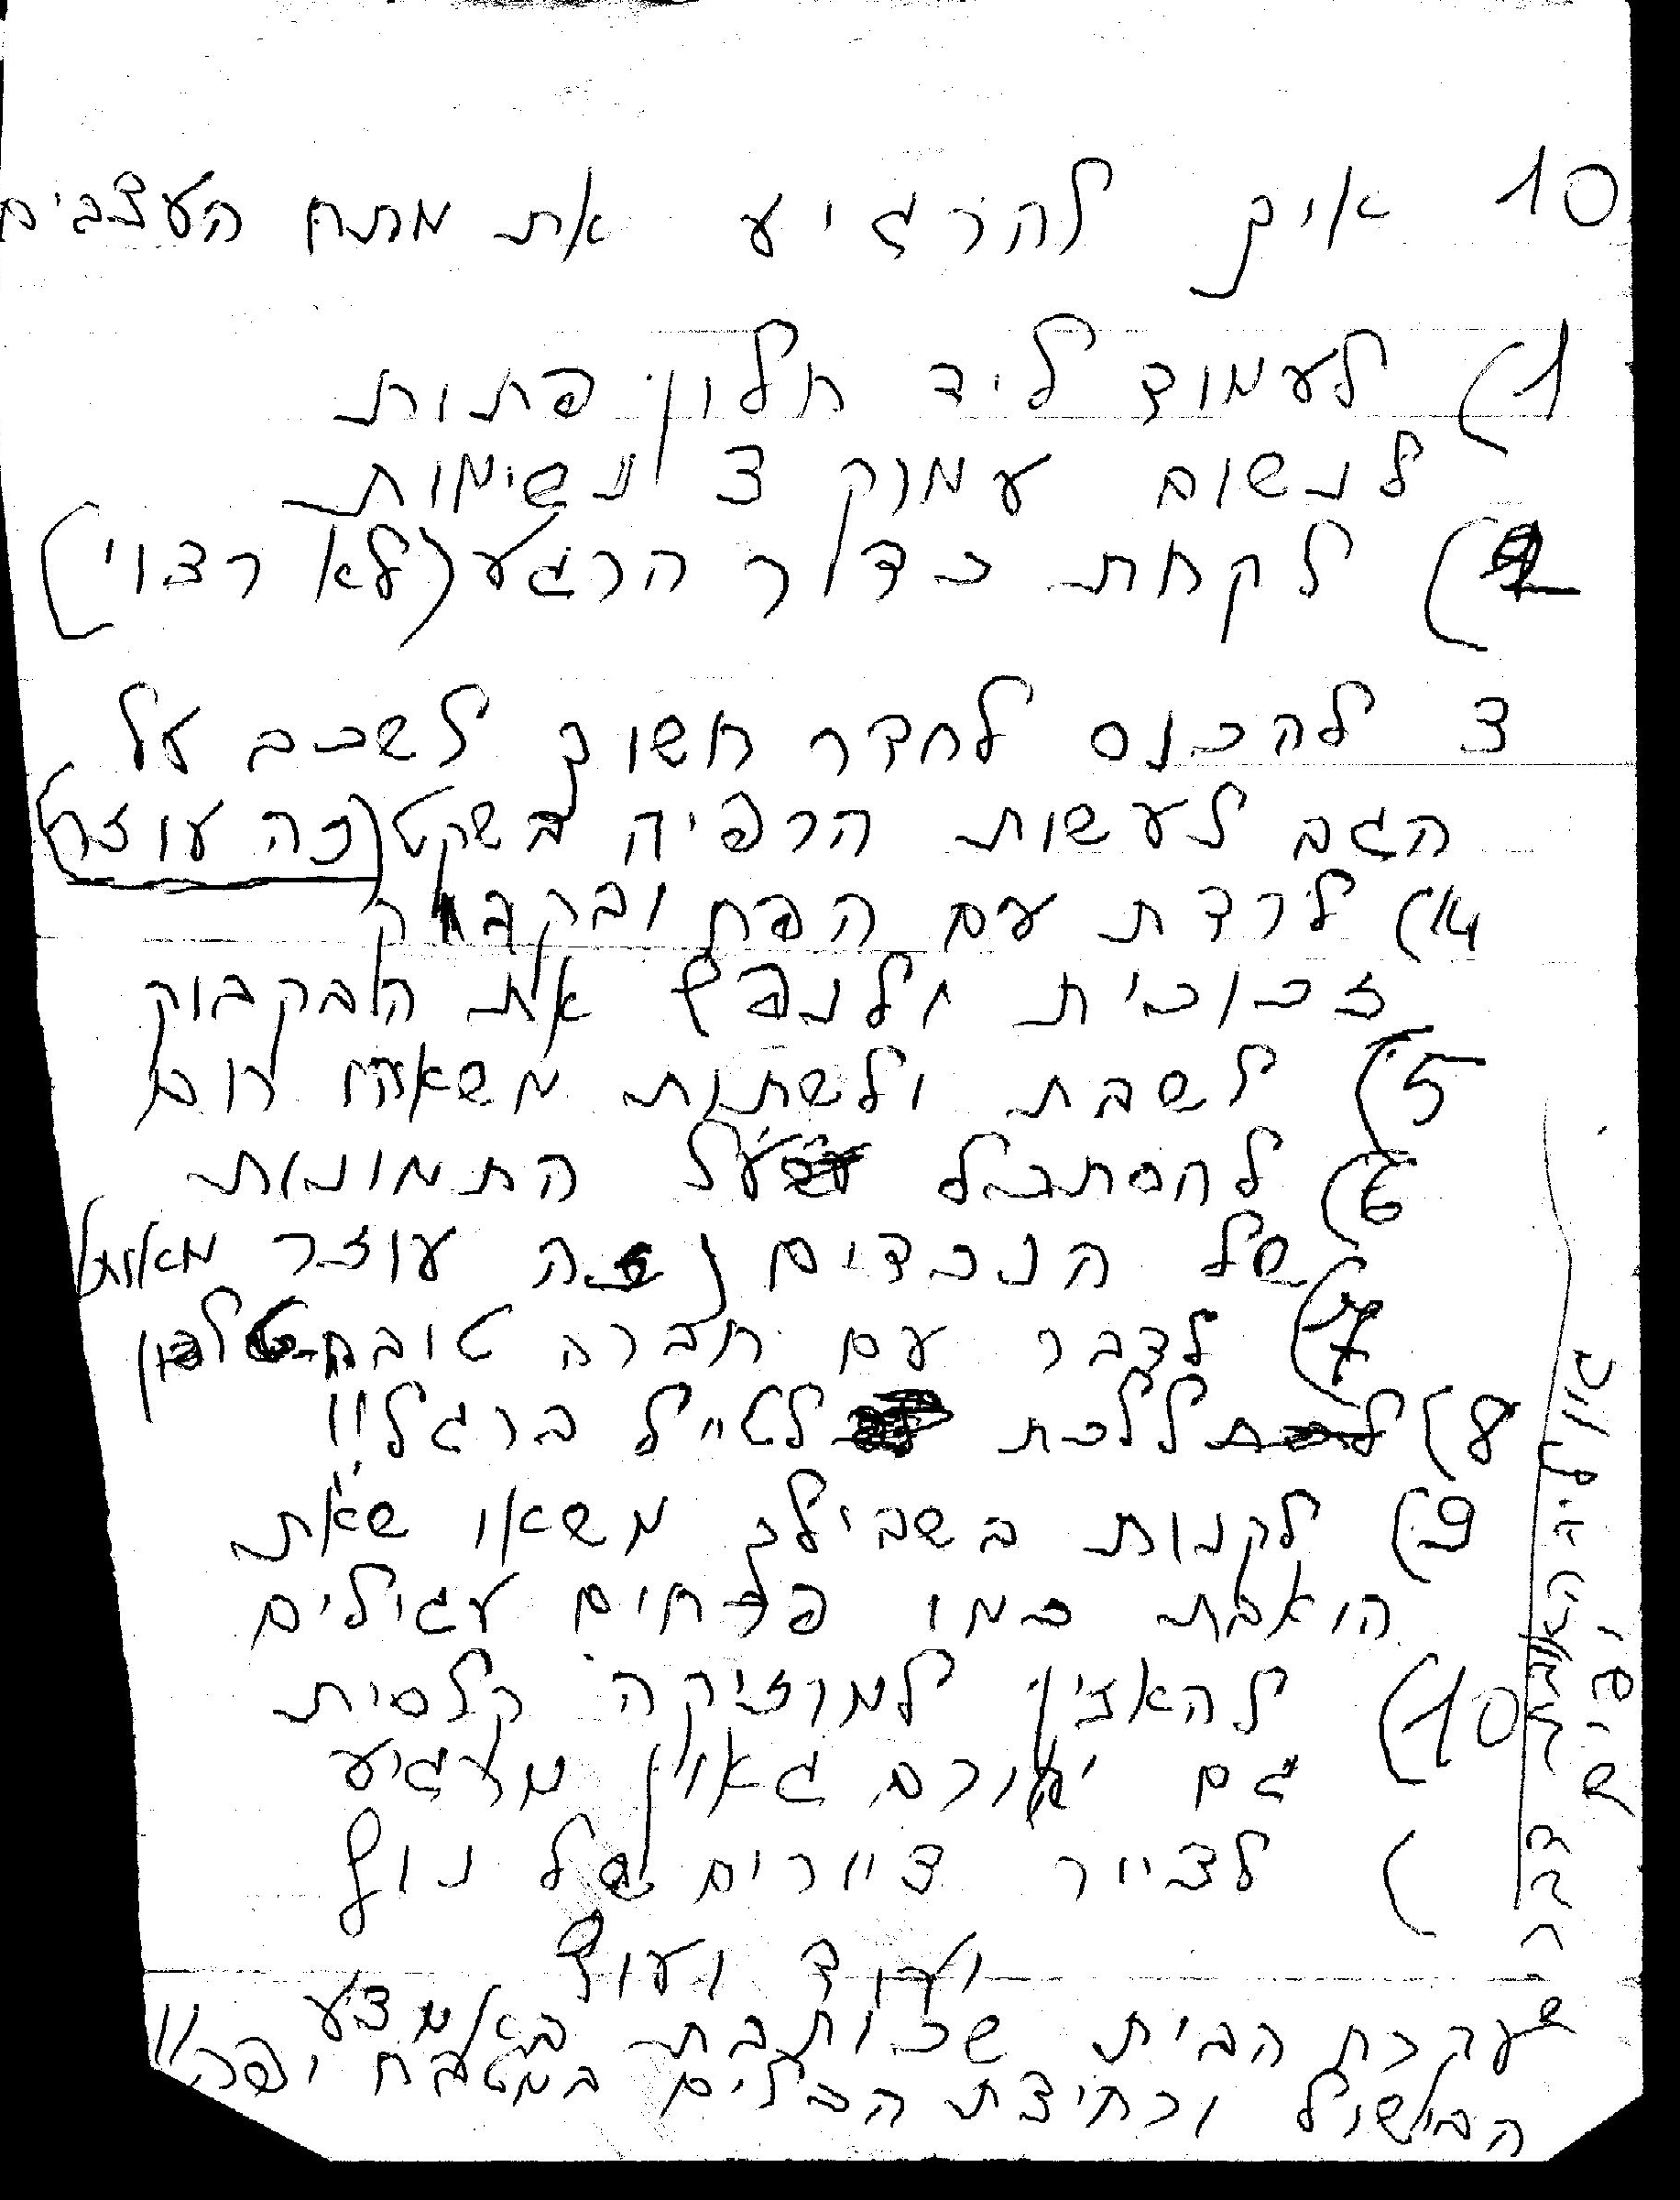 10 איך להרגיע את מתח העצבים
1) לעמוד ליד חלון פתוח
לנשום עמוק 3 נשימות
2) לקחת כדור הרגע (לא רצוי)
3 להכנס לחדר חשוך לשכב על
הגב לעשות הרפיה בשקט (זה עוזר)
4) לרדת עם הפח ובקבוק
זכוכית ולנפץ את הבקבוק
5) לשבת ולשתות משאו חום
6) להסתכל על התמונות
של הנכדים (זה עוזר מאות)
7) לדבר עם חברה טובה טלפון
8) ללכת לטייל ברגל!!
9) לקנות בשבילך משאו שאת
הואבת כמו פרחים עגילים
10) להאזין למוזיקה קלסית
גם יהורם גאון מרגיע
) לציר ציורים של נוף
ועוד ועוד
שעקרת הבית שכותבת באמצע
הבישול ורחיצת הכלים במטבח יפה"